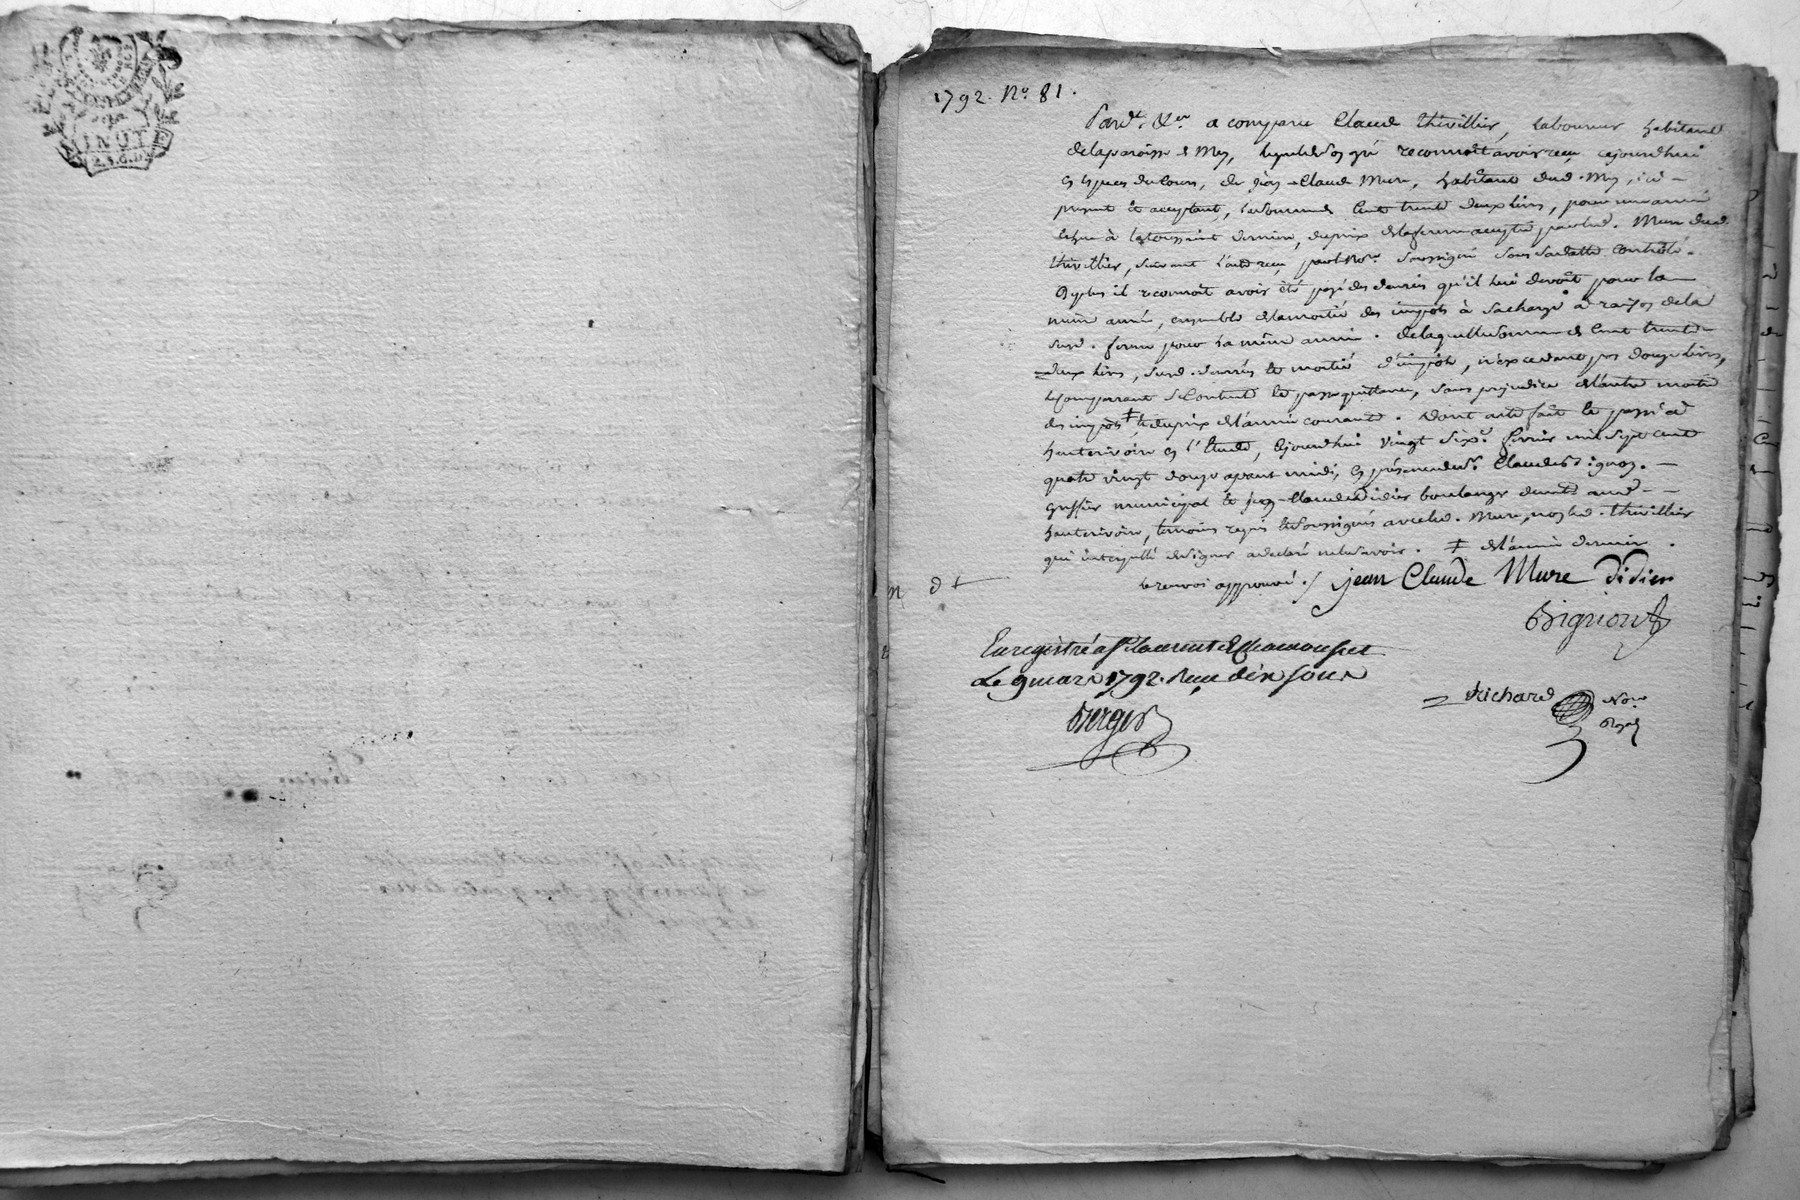 INOT
1792. No. 81.
Pardt. &er a comparu Claude thevillier, laboureur habitant
delaparoisse de Mey, lequel deson gré reconnoît avoir recu cejourdhui
en espèces decours, de jean-Claude Mure, habitant dud. Mey, ici
present et acceptant, lasomme de Cent trente deux livres, pour une année
échue à latoussaint derniere, duprix delaferme acceptée parled. Mure dud.
thevillier, suivant l'acte recu parlenore. soussigné sous sadatte contrôlé.
Deplus il reconnoît avoir été payé des denrées qu'il lui devoit pour la
même année, ensemble delamoitié des impôts à sacharge à raison dela
susd. ferme pour la même année. delaquelle somme de Cent trente
deux livres, susd. denrées et moitié d'impôts, n'excedant pas douze livres,
lecomparant secontente et passe quittance, sans prejudice del'autre moitié
des impôts ‡, et duprix del'année courante. Dont acte fait et passé à
hauterivoire en l'Etude, cejourdhui vingt six. fevrier mil sept cent
quatre vingt douze apres midi, en présence de sr. Claude
greffier municipal et jean-Claude Didier boulanger demt. aud.
hauterivoire, temoins requis et soussignés avec led. Mure, non led. thevillier
qui interpellé designer a declaré nelesavoir. ‡ del'année derniere.
le renvoi approuvé. / jean Claude Mure didier
Enregistré a st. laurent de Chamousset
Le 9 mars 1792. Recu dix sous
Richard Nore.
Royal
Berger